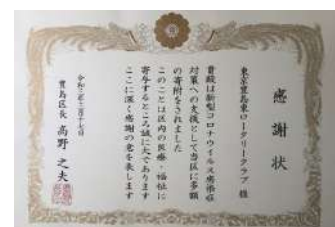 感謝状
東京豊島東ロータリークラブ 様
貴殿は新型コロナウイルス感染症
対策への支援として当区に多額
の寄附をされました
このことは区内の医療・福祉に
寄与するところ誠に大であります
ここに深く感謝の意を表します
豊島区長 高野之夫